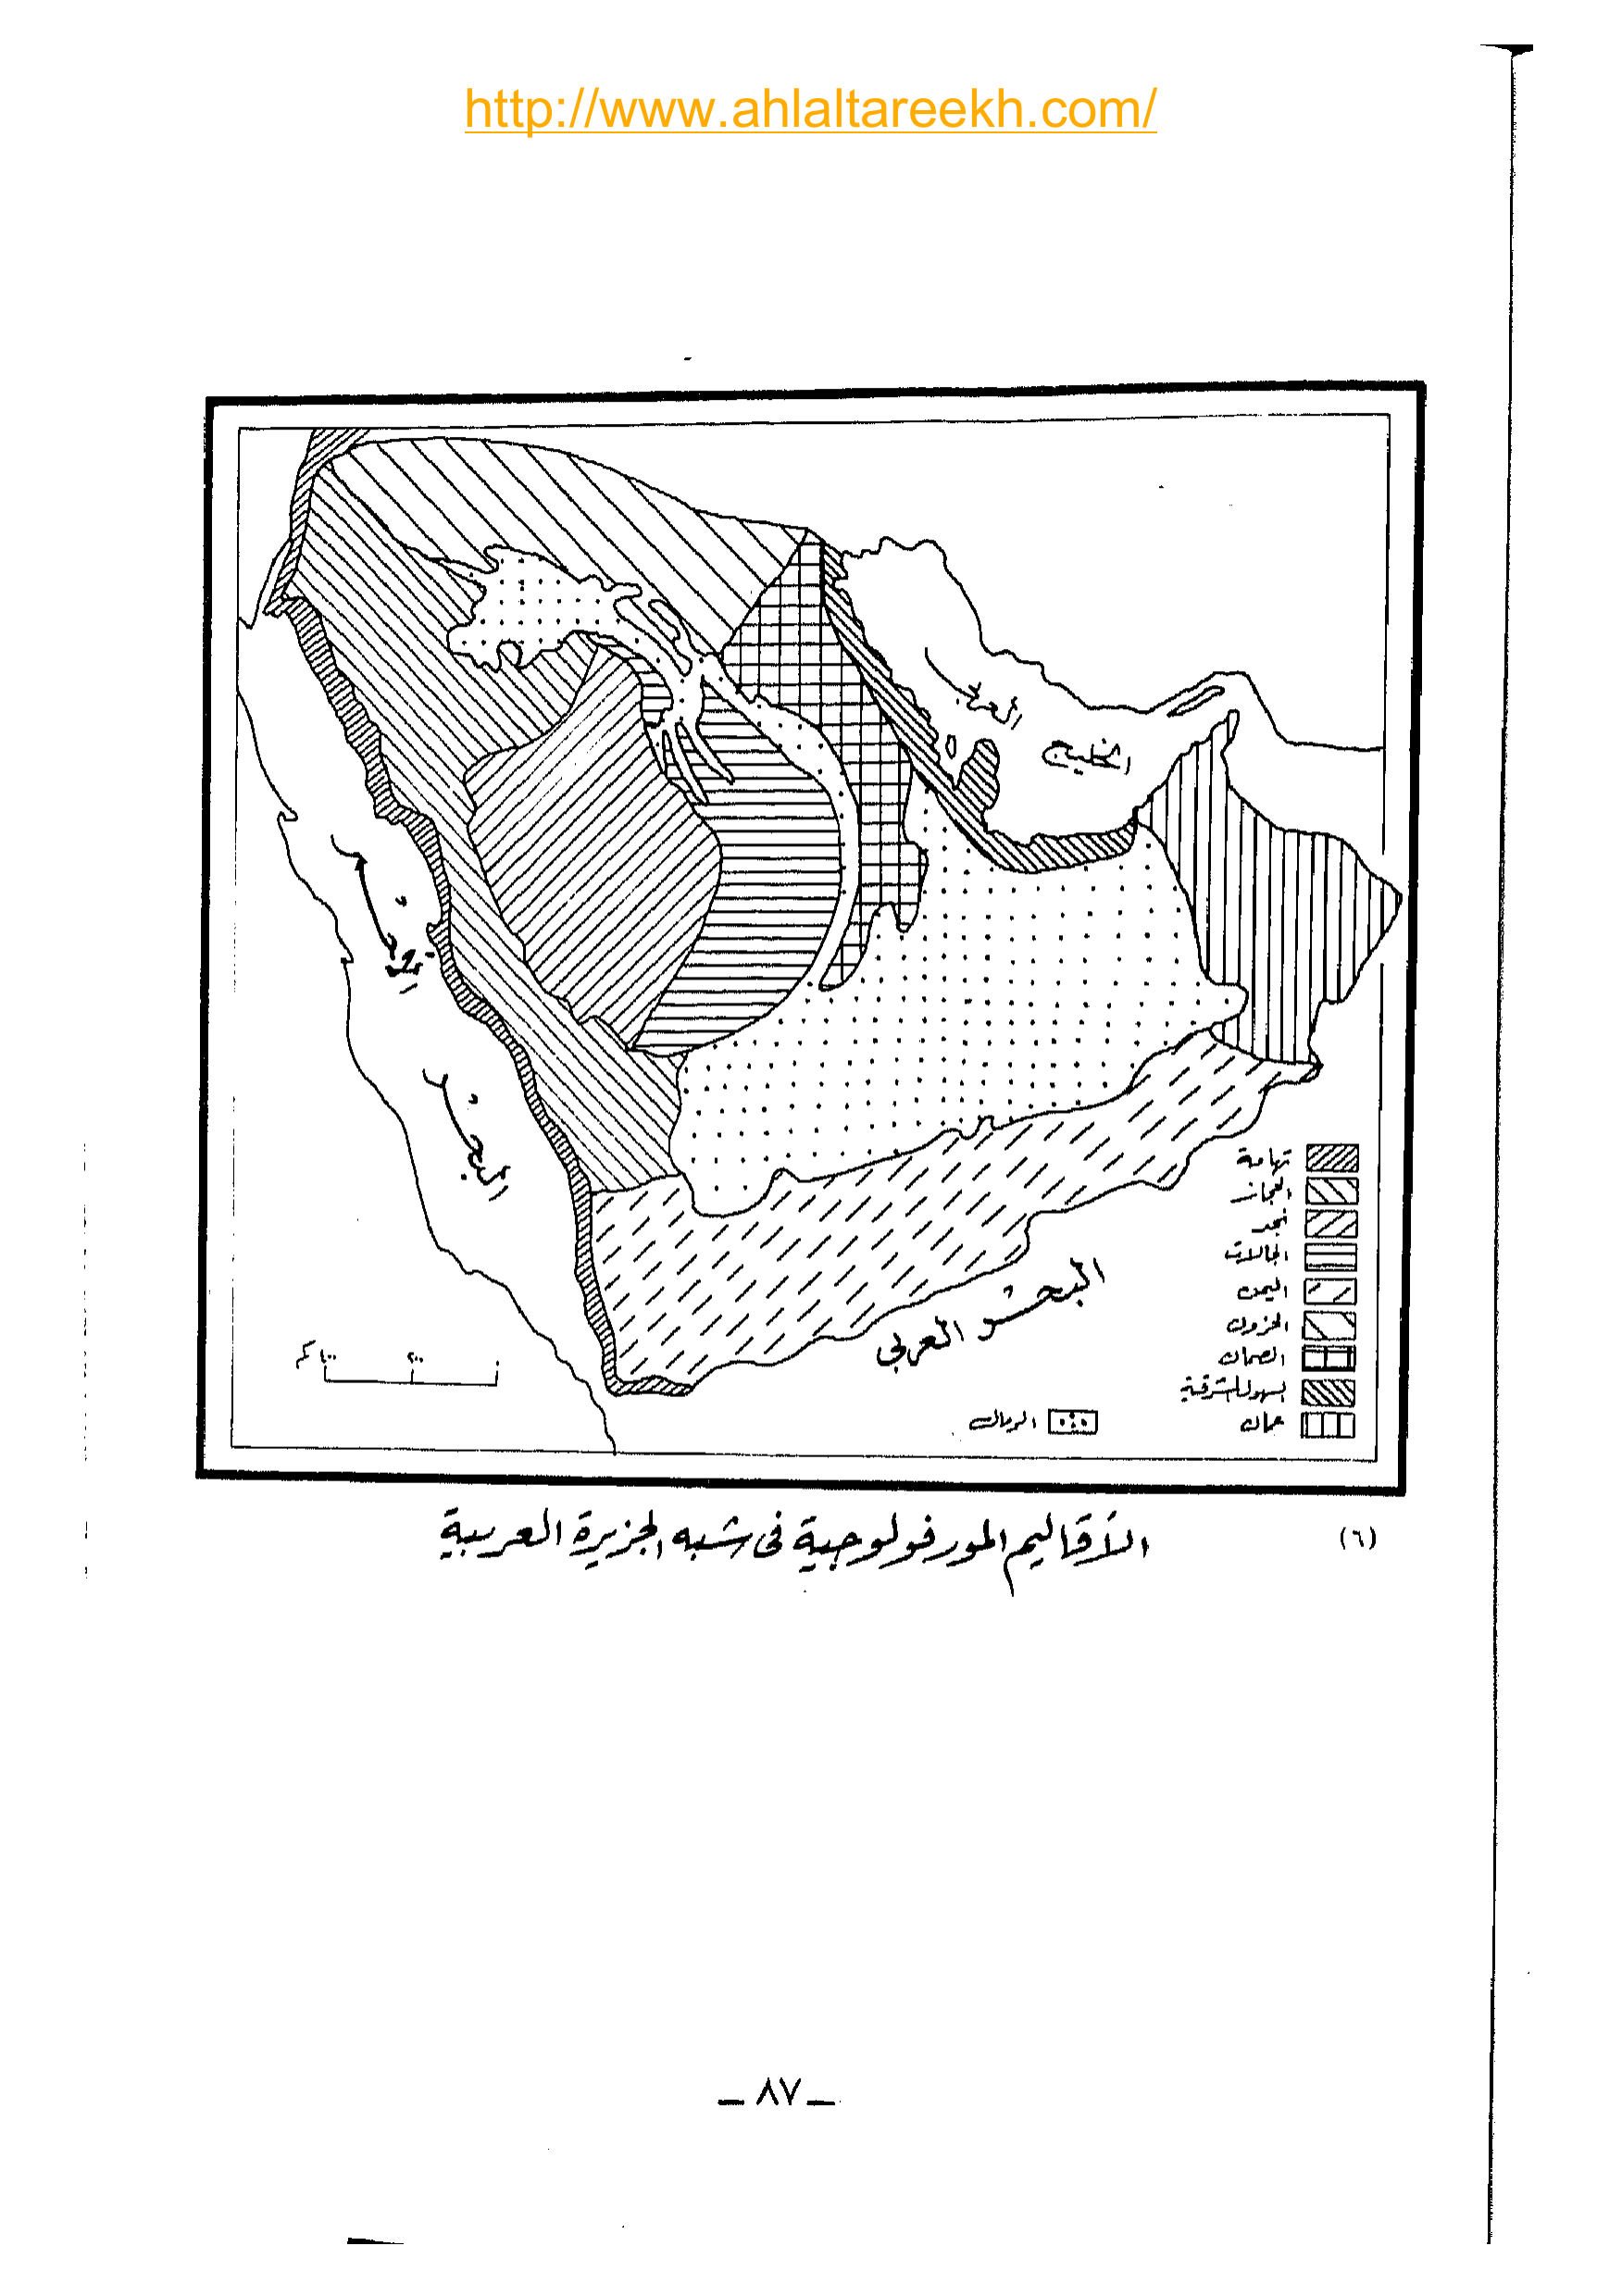 http://www.ahlaltareekh.com/
الخليج العربي
البحر
الأحمر
البحر العربي
تهامة
الحجاز
نجد
الجالات
اليمن
الحزون
الصمان
السهول الشرقية
عمان
الرمال
٢٠٠ ٤٠٠ كم
(٦) الأقاليم المورفولوجية فى شبه الجزيرة العربية
ـ ٨٧ ـ